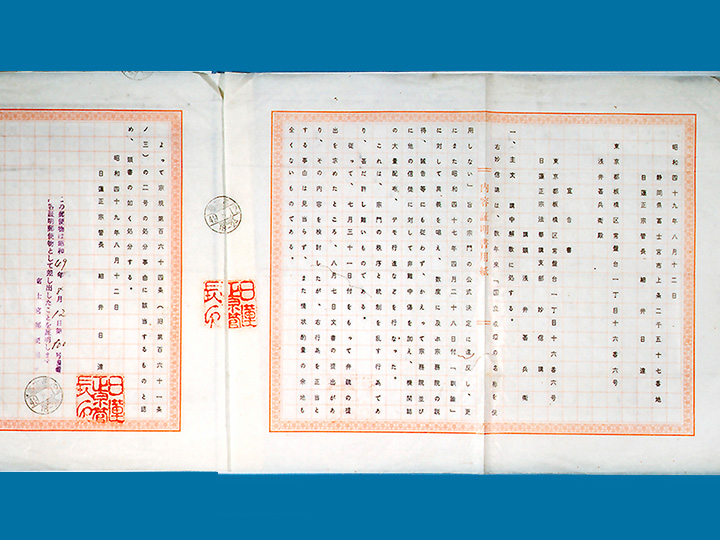 昭和四十九年八月十二日
静岡県富士宮市上条二千五十七番地
日蓮正宗管長　細井日達
東京都板橋区常盤台一丁目十六番六号
浅井甚兵衛殿
宣告書
東京都板橋区常盤台一丁目十六番六号
日蓮正宗法華講支部　妙信講
講頭　浅井甚兵衛
一、主文　講中解散に処する。
右妙信講は、数年来「国立戒壇の名称を使
用しない」旨の宗門の公式決定に違反し、更
にまた昭和四十七年四月二十八日付「訓諭」
に対して異義を唱え、数度に及ぶ宗務院の説
得、誡告等にも従わず、かえって宗務院並び
に他の信徒に対して非難中傷を加え、機関誌
の大量配布、デモ行進などを行なった。
これは、宗門の秩序と統制を乱す行為であ
り、甚だ許し難いものである。
従って、七月三十一日付をもって弁疏の提
出を求めたところ、八月七日文書の提出があ
り、その内容を検討したが、右行為を正当と
する事由は見当らず、また情状酌量の余地も
全くないものである。
内容証明書用紙
よって宗規第百六十四条（旧第百六十一条
ノ三）の二号の処分事由に該当するものと認
め、頭書の如く処分する。
昭和四十九年八月十二日
日蓮正宗管長　細井日達
この郵便物は昭和49年8月12日第101号書留
内容証明郵便物として差し出したことを証明します
富士宮郵便局
日蓮正宗管長之印